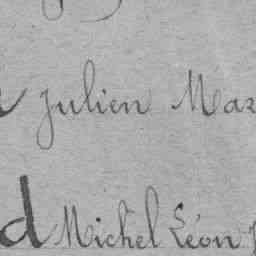 Julien Maz
d Michel Léon